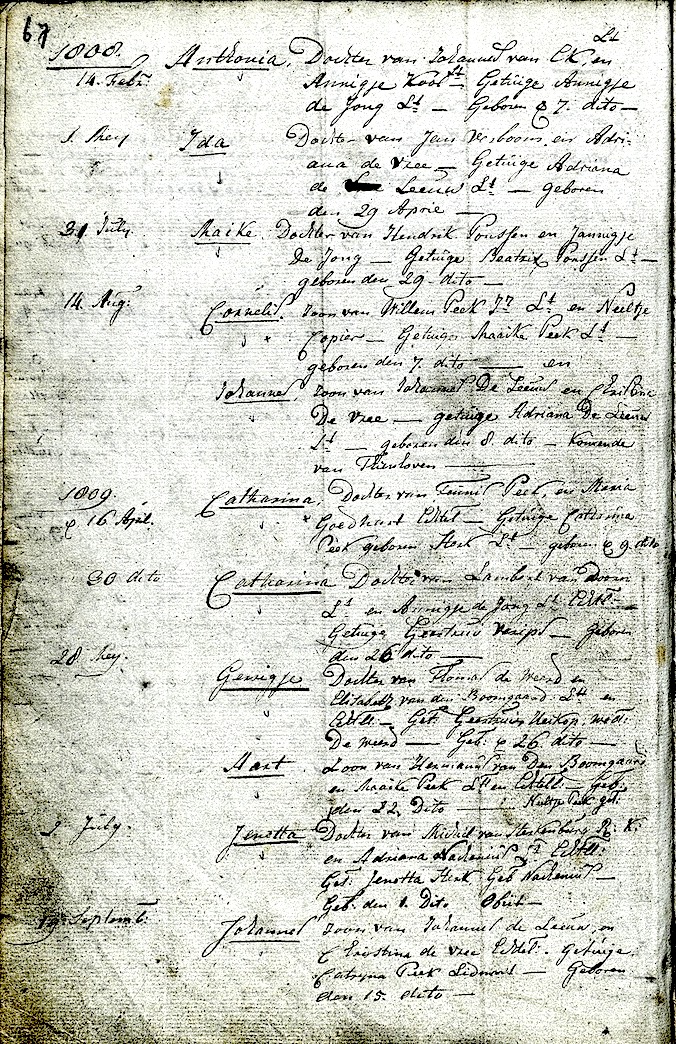 67
1808. Anthonia, Dochter van Johannes van Ek, en Lt
14. Febr. Annigje Kool Lt — Getuige Annigje
de Jong Lt — Geboren 7. dito —
1. Mey Ida Dochter van Jan Verboom, en Adri-
ana de Vree — Getuige Adriana
de Leeuw Lt — geboren
den 29 April —
31 July. Maike. Dochter van Hendrik Ponssen en Jannigje
De Jong — Getuige Beatrix Ponssen Lt —
geboren den 29. dito —
14. Aug. Cornelis. Zoon van Willem Peek Jr Lt en Neeltje
Copier — Getuige Maaike Peek Lt —
geboren den 7. dito — en
Johannes, Zoon van Johannes De Leeuw en Christina
De Vree — getuige Adriana De Leeuw
Lt — geboren den 8. dito — komende
van Thienhoven —
1809. Catharina, Dochter van Teunis Peek, en Maria
16 April. Goedhart Echtel — Getuige Catharina
Peek geboren Lt — geboren 9. dito
30 dito Catharina Dochter van Lambert van Doorn
Lt en Annigje de Jong Lt Echtel —
Getuige Geertruij — Geboren
den 26 dito —
28 Mey. Gerrigje Dochter van Thomas de Weerd en
Elisabeth van den Boomgaard Ltt en
Echtell. — Get. Geertruij wed:
De Weerd — Geb. 26 dito —
Aart Zoon van Hermanus van Den Boomgaard
en Maaike Peek Ltt en Echtell — Geb.
den 22. Dito — Peek get.
2 July. Jenetta Dochter van Michiel van R: K:
en Adriana Lt Echtell:
Get. Jenetta Geb —
Geb. den 1. Dito Obiit —
Septemb. Johannes Zoon van Johannes de Leeuw, en
Christina de Vree Echtel. Getuige.
Catrijna Peek — Geboren
den 15. dito —